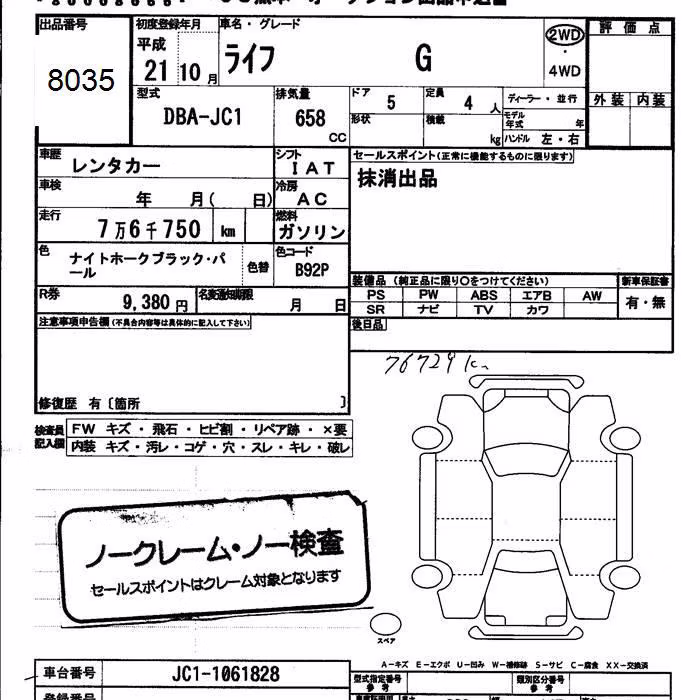 出品番号 初度登録年月 車名・グレード 評価点
8035 平成 21 10月 ライフ G 2WD 4WD
外装 内装
型式 排気量 ドア 5 定員 4人 ディーラー・並行
DBA-JC1 658 CC 形状 積載 kg モデル年式 年
ハンドル 左・右
車歴 レンタカー シフト IAT セールスポイント(正常に機能するものに限ります)
車検 年 月( 日) 冷房 AC 抹消出品
走行 7万6千750 km 燃料 ガソリン
色 ナイトホークブラック・パール 色替 色コード B92P
装備品 (純正品に限り○をつけてください) 新車保証書
PS PW ABS エアB AW 有・無
SR ナビ TV カワ
R券 9,380円 名変通知期限 月 日
後日品
注意事項申告欄(不具合内容等は具体的に記入して下さい)
76729km
修復歴 有〔箇所 〕
検査員記入欄 FW キズ・飛石・ヒビ割・リペア跡・×要
内装 キズ・汚レ・コゲ・穴・スレ・キレ・破レ
ノークレーム・ノー検査
セールスポイントはクレーム対象となります
スペア
A-キズ E-エクボ U-凹み W-補修跡 S-サビ C-腐食 XX-交換済
車台番号 JC1-1061828 型式指定番号 参考 類別区分番号 参考
登録番号